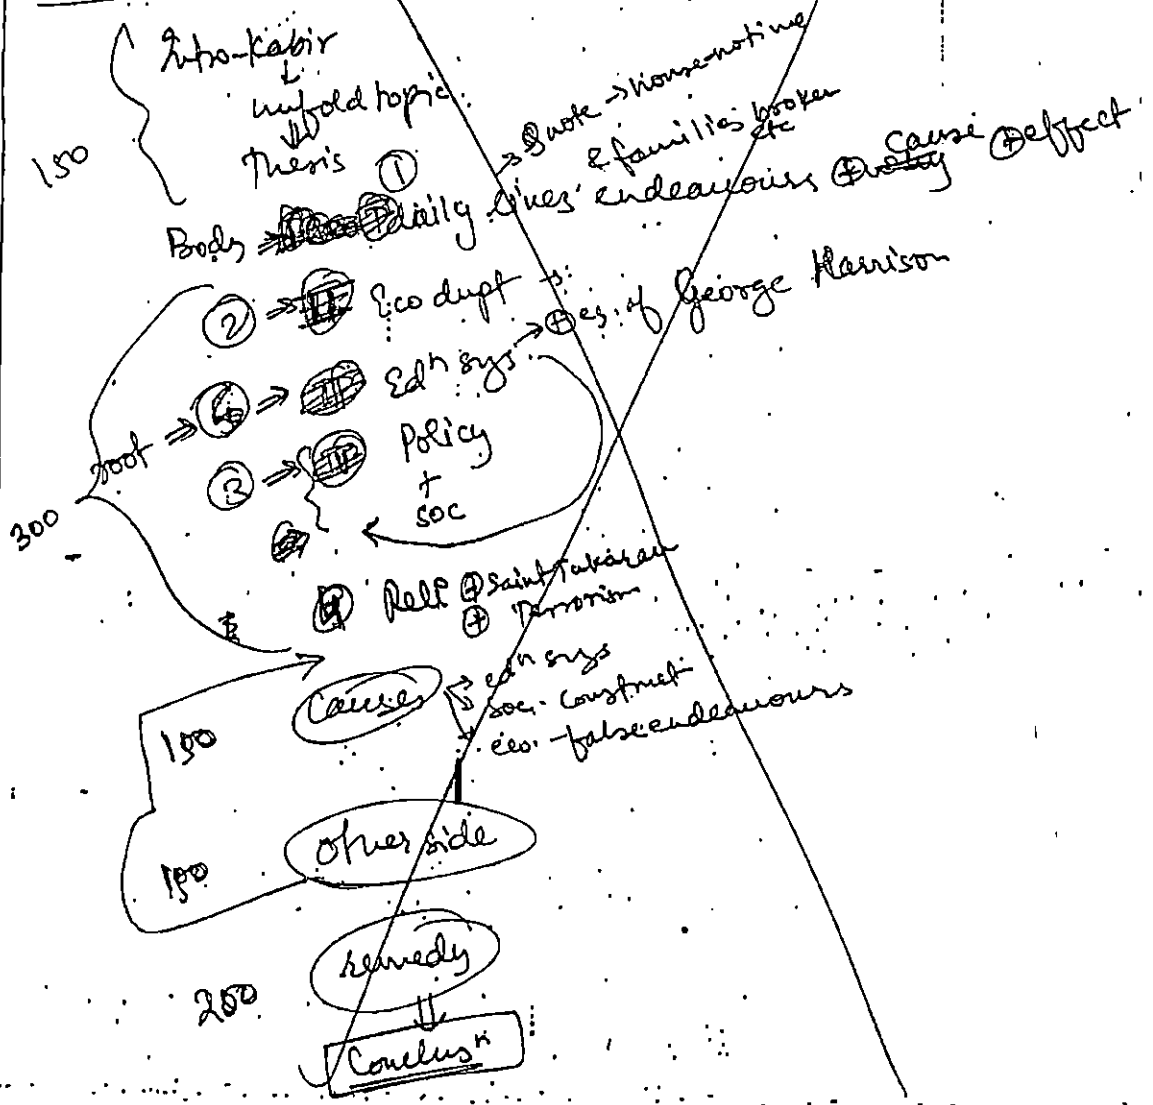 Intro-Kabir
↓
unfold topic
⇓
Thesis
150
→ Quote → house-not ine
& families broken
etc
Body ⇒ ① daily lives' endeavours ⊕ cause ⊕ effect
② ⇒ Eco dupt →:
Edⁿ sys → ⊕ eg. of George Harrison
root ⇒ ⇒
③ ⇒ Policy
+
soc
300
④ Reli ⊕ Saint Tukaram
⊕ Terrorism
Causes → edⁿ sys
→ soc. construct
→ eco. - false endeavours
150
other side
150
remedy
200
⇓
Conclusⁿ